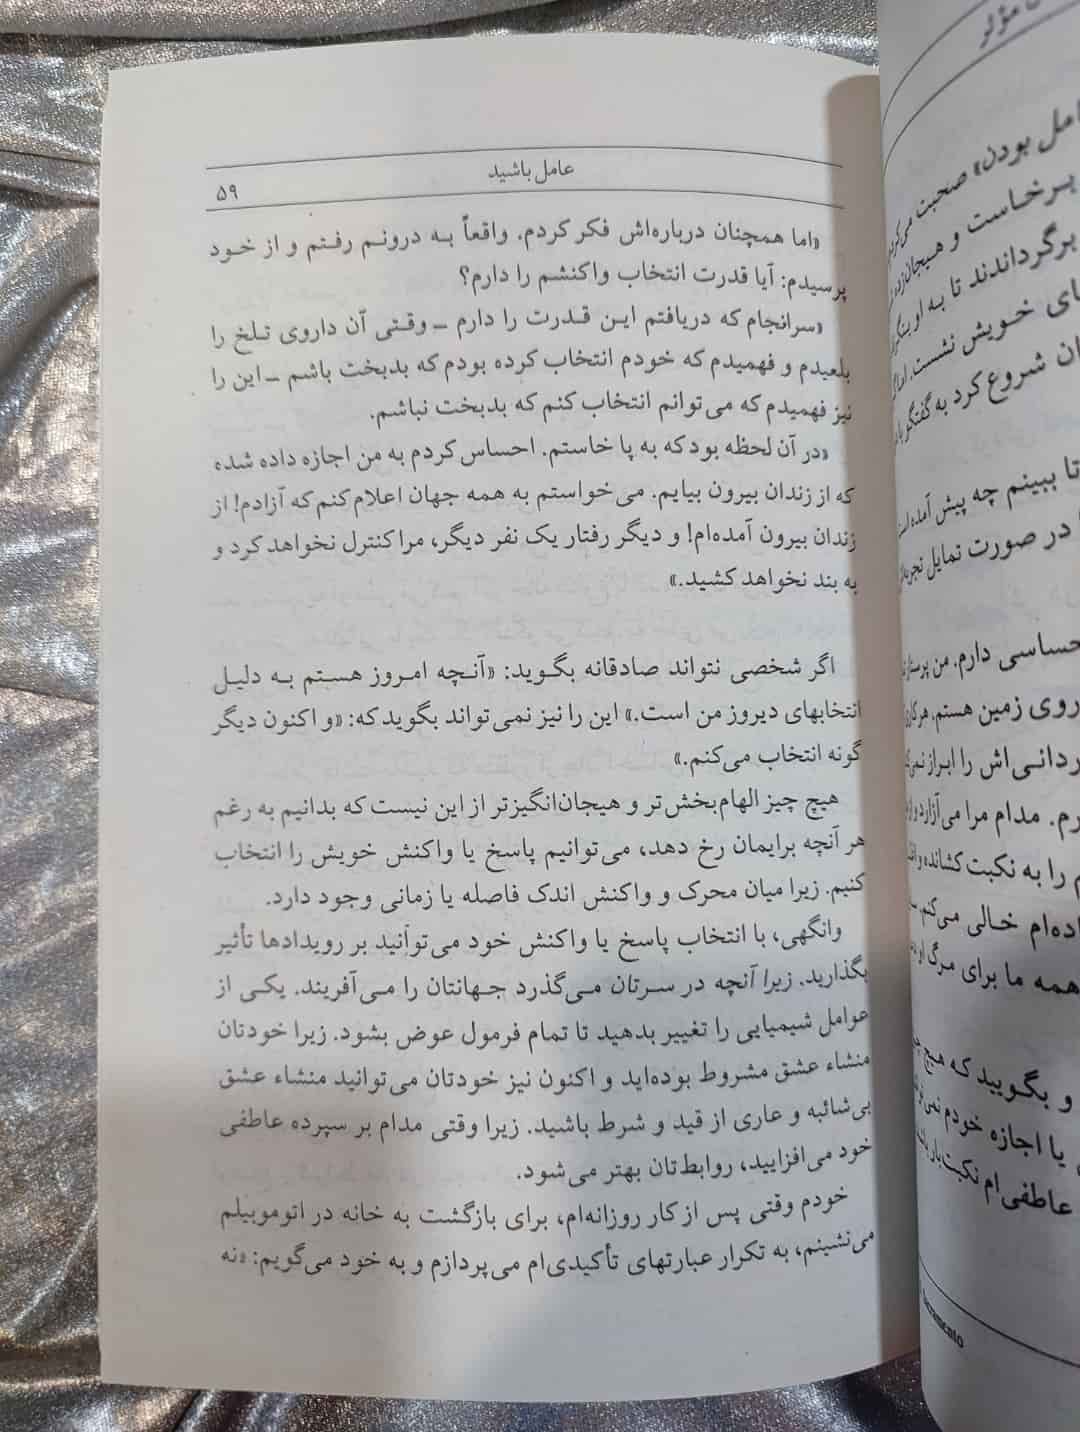 عامل باشید
۵۹
«اما همچنان درباره‌اش فکر کردم. واقعاً به درونم رفتم و از خود
پرسیدم: آیا قدرت انتخاب واکنشم را دارم؟
«سرانجام که دریافتم این قدرت را دارم ـ وقتی آن داروی تلخ را
بلعیدم و فهمیدم که خودم انتخاب کرده بودم که بدبخت باشم ـ این را
نیز فهمیدم که می‌توانم انتخاب کنم که بدبخت نباشم.
«در آن لحظه بود که به پا خاستم. احساس کردم به من اجازه داده شده
که از زندان بیرون بیایم. می‌خواستم به همه جهان اعلام کنم که آزادم! از
زندان بیرون آمده‌ام! و دیگر رفتار یک نفر دیگر، مرا کنترل نخواهد کرد و
به بند نخواهد کشید.»
اگر شخصی نتواند صادقانه بگوید: «آنچه امروز هستم به دلیل
انتخابهای دیروز من است.» این را نیز نمی‌تواند بگوید که: «و اکنون دیگر
گونه انتخاب می‌کنم.»
هیچ چیز الهام‌بخش‌تر و هیجان‌انگیزتر از این نیست که بدانیم به رغم
هر آنچه برایمان رخ دهد، می‌توانیم پاسخ یا واکنش خویش را انتخاب
کنیم. زیرا میان محرک و واکنش اندک فاصله یا زمانی وجود دارد.
وانگهی، با انتخاب پاسخ یا واکنش خود می‌توانید بر رویدادها تأثیر
بگذارید. زیرا آنچه در سرتان می‌گذرد جهانتان را می‌آفریند. یکی از
عوامل شیمیایی را تغییر بدهید تا تمام فرمول عوض بشود. زیرا خودتان
منشاء عشق مشروط بوده‌اید و اکنون نیز خودتان می‌توانید منشاء عشق
بی‌شائبه و عاری از قید و شرط باشید. زیرا وقتی مدام بر سپرده عاطفی
خود می‌افزایید، روابط‌تان بهتر می‌شود.
خودم وقتی پس از کار روزانه‌ام، برای بازگشت به خانه در اتوموبیلم
می‌نشینم، به تکرار عبارتهای تأکیدی‌ام می‌پردازم و به خود می‌گویم: «نه
مؤثر
عامل بودن» صحبت می‌کردم
برخاست و هیجان‌زده
برگرداندند تا به او بنگرند
های خویش نشست. اما
شروع کرد به گفتگو با
تا ببینم چه پیش آمده است
در صورت تمایل تجربه‌اش
حساسی دارم. من پرستار
روی زمین هستم. هر کاری
ردانی‌اش را ابراز نمی‌کند
رم. مدام مرا می‌آزارد و از
م را به نکبت کشانده و
اده‌ام خالی می‌کنم.
همه ما برای مرگ او
و بگویید که هیچ
یا اجازه خودم نمی‌تواند
عاطفی‌ام نکبت‌بار باشد
Sacramento